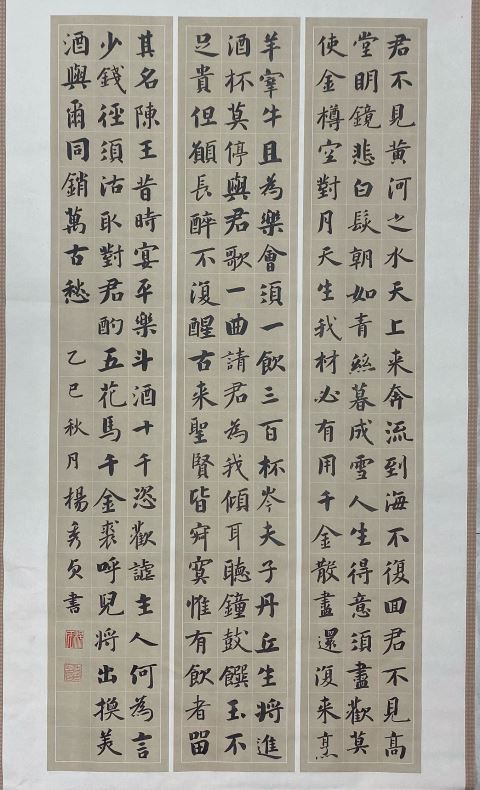 君不見黃河之水天上来奔流到海不復回君不見高
堂明鏡悲白髮朝如青絲暮成雪人生得意須盡歡莫
使金樽空對月天生我材必有用千金散盡還復来烹
羊宰牛且為樂會須一飲三百杯岑夫子丹丘生將進
酒杯莫停與君歌一曲請君為我傾耳聽鐘鼓饌玉不
足貴但願長醉不復醒古来聖賢皆寂寞惟有飲者留
其名陳王昔時宴平樂斗酒十千恣歡謔主人何為言
少錢徑須沽取對君酌五花馬千金裘呼兒將出換美
酒與爾同銷萬古愁 乙巳秋月楊秀書